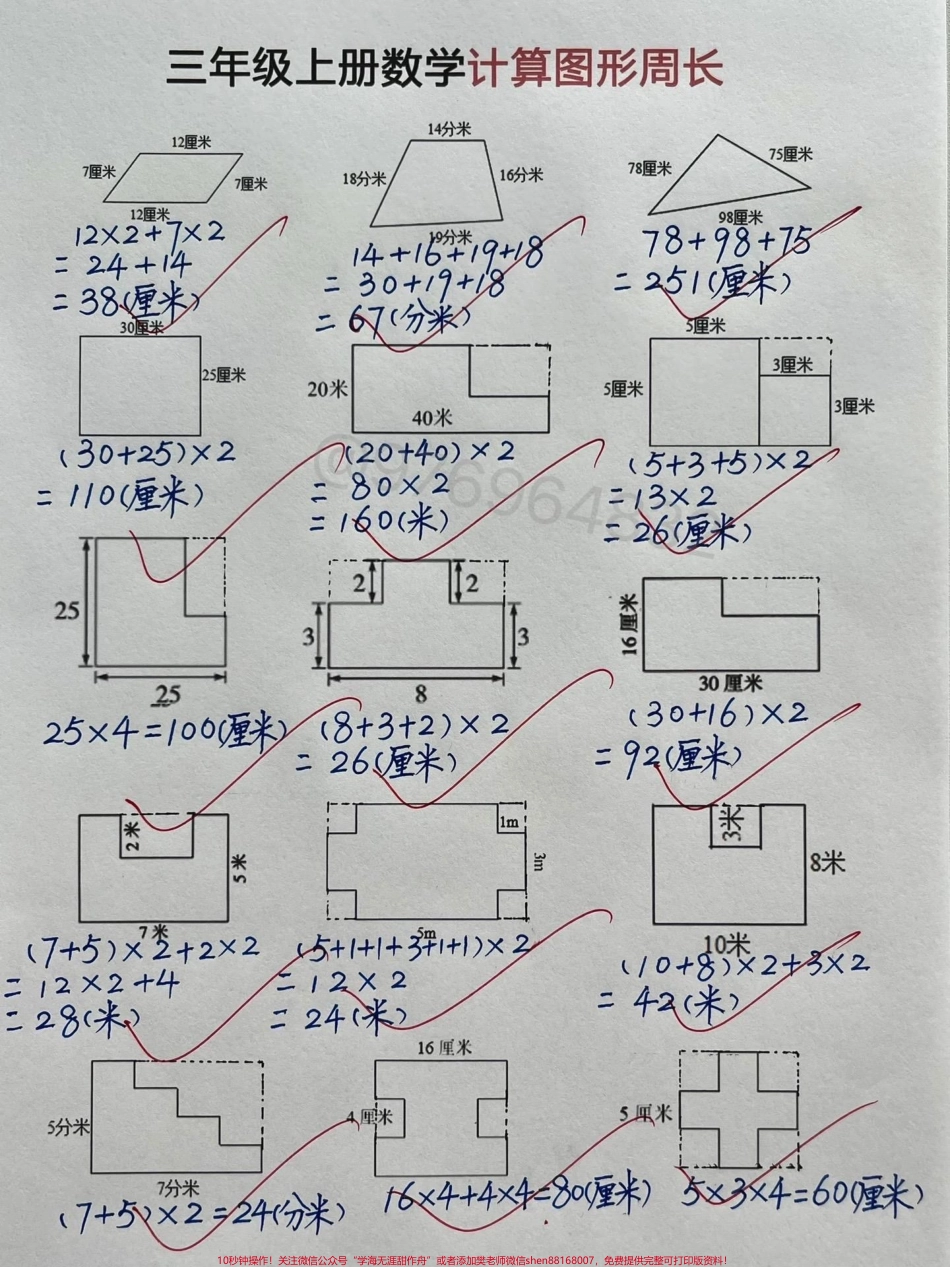 三年级上册数学计算图形周长
12厘米
7厘米
7厘米
12厘米
12×2+7×2
= 24+14
= 38(厘米)
14分米
18分米
16分米
19分米
14+16+19+18
= 30+19+18
= 67(分米)
78厘米
75厘米
98厘米
78+98+75
= 251(厘米)
30厘米
25厘米
(30+25)×2
= 110(厘米)
20米
40米
(20+40)×2
= 80×2
= 160(米)
5厘米
3厘米
5厘米
3厘米
(5+3+5)×2
= 13×2
= 26(厘米)
25
25
25×4=100(厘米)
2
2
3
3
8
(8+3+2)×2
= 26(厘米)
16厘米
30厘米
(30+16)×2
= 92(厘米)
2米
5米
7米
(7+5)×2+2×2
= 12×2+4
= 28(米)
1m
3m
5m
(5+1+1+3+1+1)×2
= 12×2
= 24(米)
3米
8米
10米
(10+8)×2+3×2
= 42(米)
5分米
7分米
(7+5)×2=24(分米)
16厘米
4厘米
16×4+4×4=80(厘米)
5厘米
5×3×4=60(厘米)
10秒钟操作！关注微信公众号“学海无涯甜作舟”或者添加樊老师微信shen88168007，免费提供完整可打印版资料！